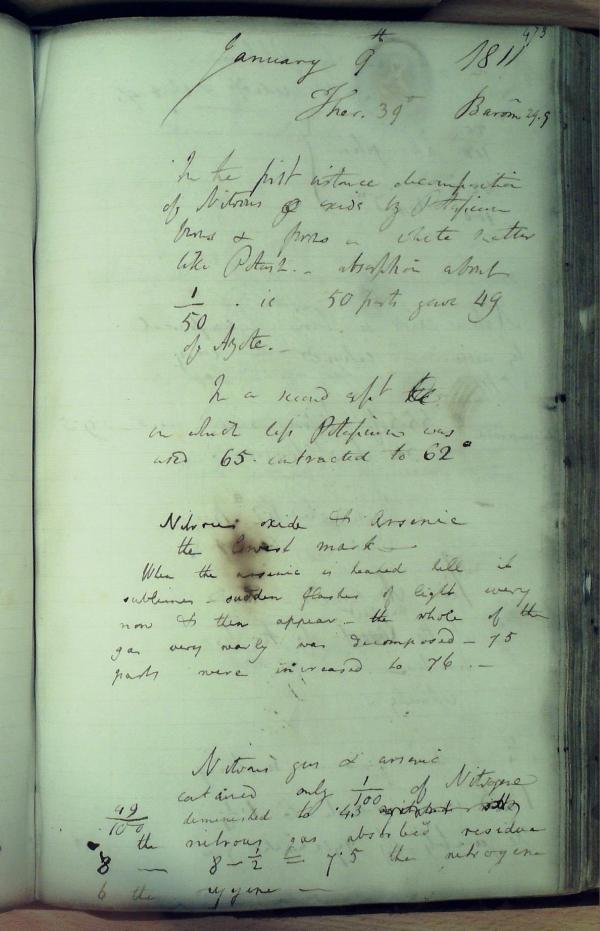 473
January 9th 1811
Ther. 39° Barom 29.9
In the first instance decomposition
of Nitrous oxide by Potassium
burns & forms a white matter
like Potash. - absorption about
1/50 . ie 50 parts gave 49
of Azote. -
In a second expt
in which less Potassium was
used 65. contracted to 62
Nitrous oxide & Arsenic
the lowest mark
When the arsenic is heated till it
sublimes - sudden flashes of light every
now & then appear - the whole of the
gas very nearly was decomposed - 75
parts were increased to 76 . -
Nitrous gas & arsenic
contained only 1/100 of Nitrogene
49/100 diminished to 43
the nitrous gas absorbed residue
8 — 8 - 1/2 = 7.5 the nitrogene
6 the oxygene —